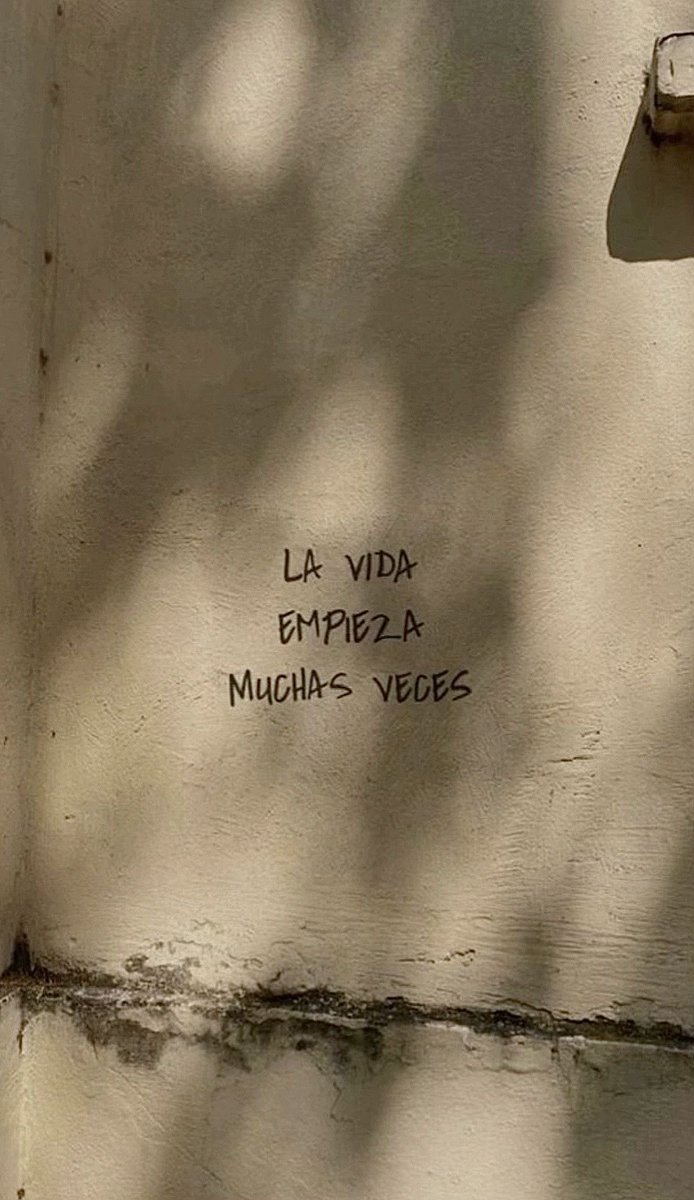 LA VIDA
EMPIEZA
MUCHAS VECES